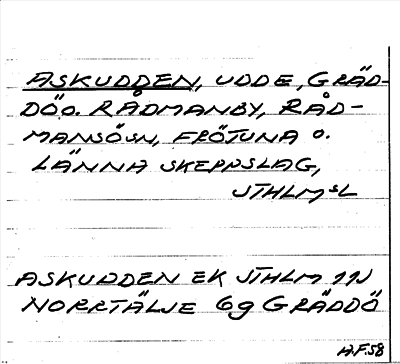 ASKUDDEN, UDDE, GRÄD-
DÖ O. RÅDMANBY, RÅD-
MANSÖ SN, FRÖTUNA O.
LÄNNA SKEPPSLAG,
STHLMS L
ASKUDDEN EK STHLM 11J
NORRTÄLJE 6g GRÄDDÖ
A.F. 58